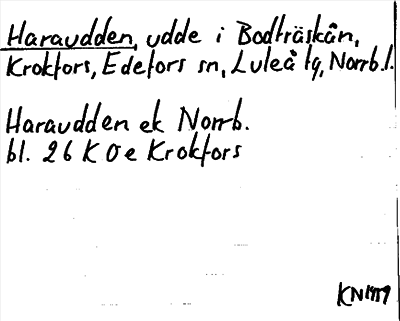 Haraudden, udde i Bodträskån,
Krokfors, Edefors sn, Luleå tg, Norrb.l.
Haraudden ek Norrb.
bl. 26 K 0 e Krokfors